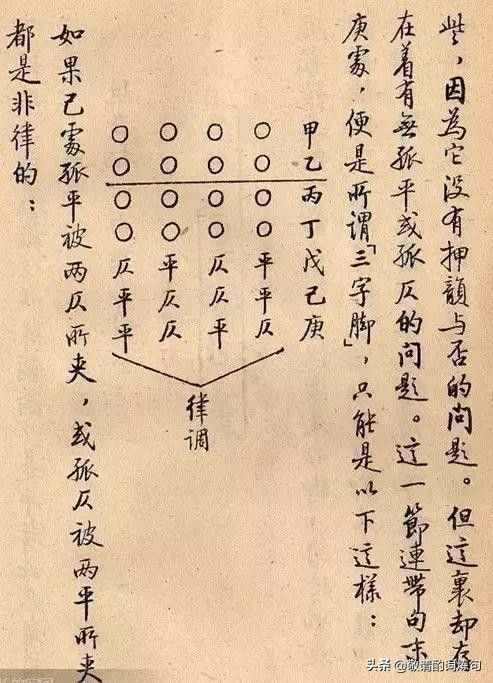 些，因為它没有押韻与否的问题。但這裏却存
在着有無孤平或孤仄的问题。這一節連带句末
庚處，便是所謂「三字脚」，只能是以下這樣：
甲乙丙丁戊己庚
○○○○平平仄
○○○○仄仄平
○○○○平仄仄
○○○○仄平平
律调
如果己處孤平被两仄所夹，或孤仄被两平所夹
都是非律的：
头条